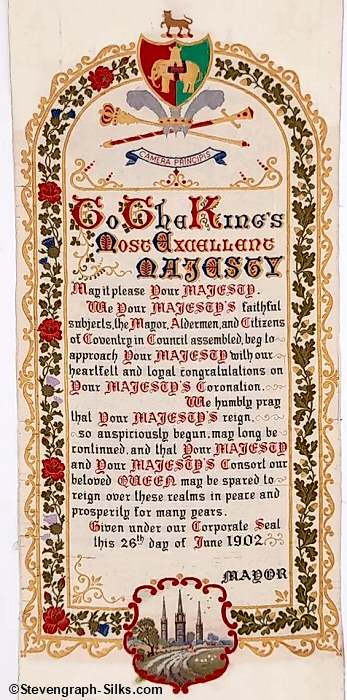 CAMERA PRINCIPIS
To The King's
Most Excellent
MAJESTY
May it please Your MAJESTY.
We Your MAJESTY'S faithful
subjects, the Mayor, Aldermen, and Citizens
of Coventry in Council assembled, beg to
approach Your MAJESTY with our
heartfelt and loyal congratulations on
Your MAJESTY'S Coronation.
We humbly pray
that Your MAJESTY'S reign,
so auspiciously begun, may long be
continued, and that Your MAJESTY
and Your MAJESTY'S Consort our
beloved QUEEN may be spared to
reign over these realms in peace and
prosperity for many years.
Given under our Corporate Seal
this 26th day of June 1902.
MAYOR
©Stevengraph-Silks.com